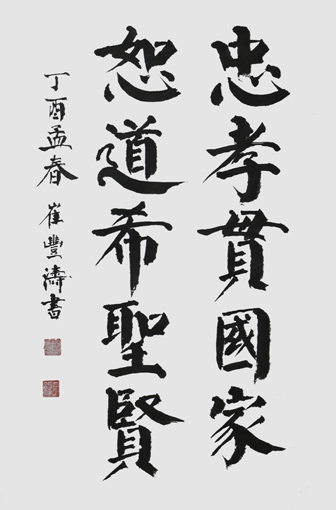 忠孝貫國家
恕道希聖賢
丁酉孟春 崔豐濤書